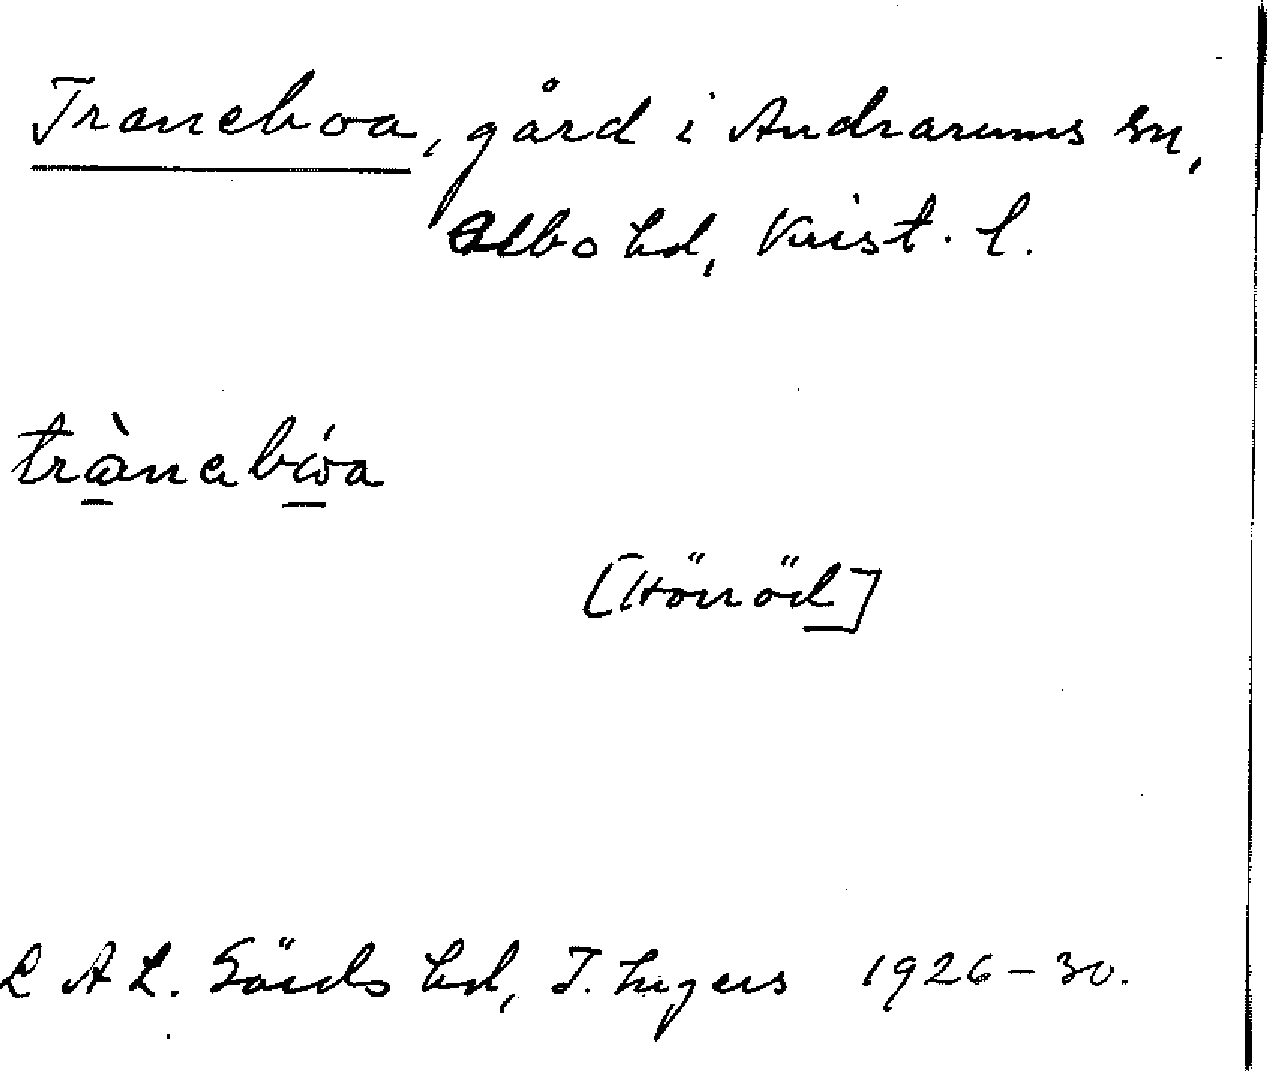 Traneboa, gård i Andrarums sn,
Albo hd, Krist. l.
trànabóa
[Hönöd]
L A L. Gärds hd, I. Ingers 1926-30.